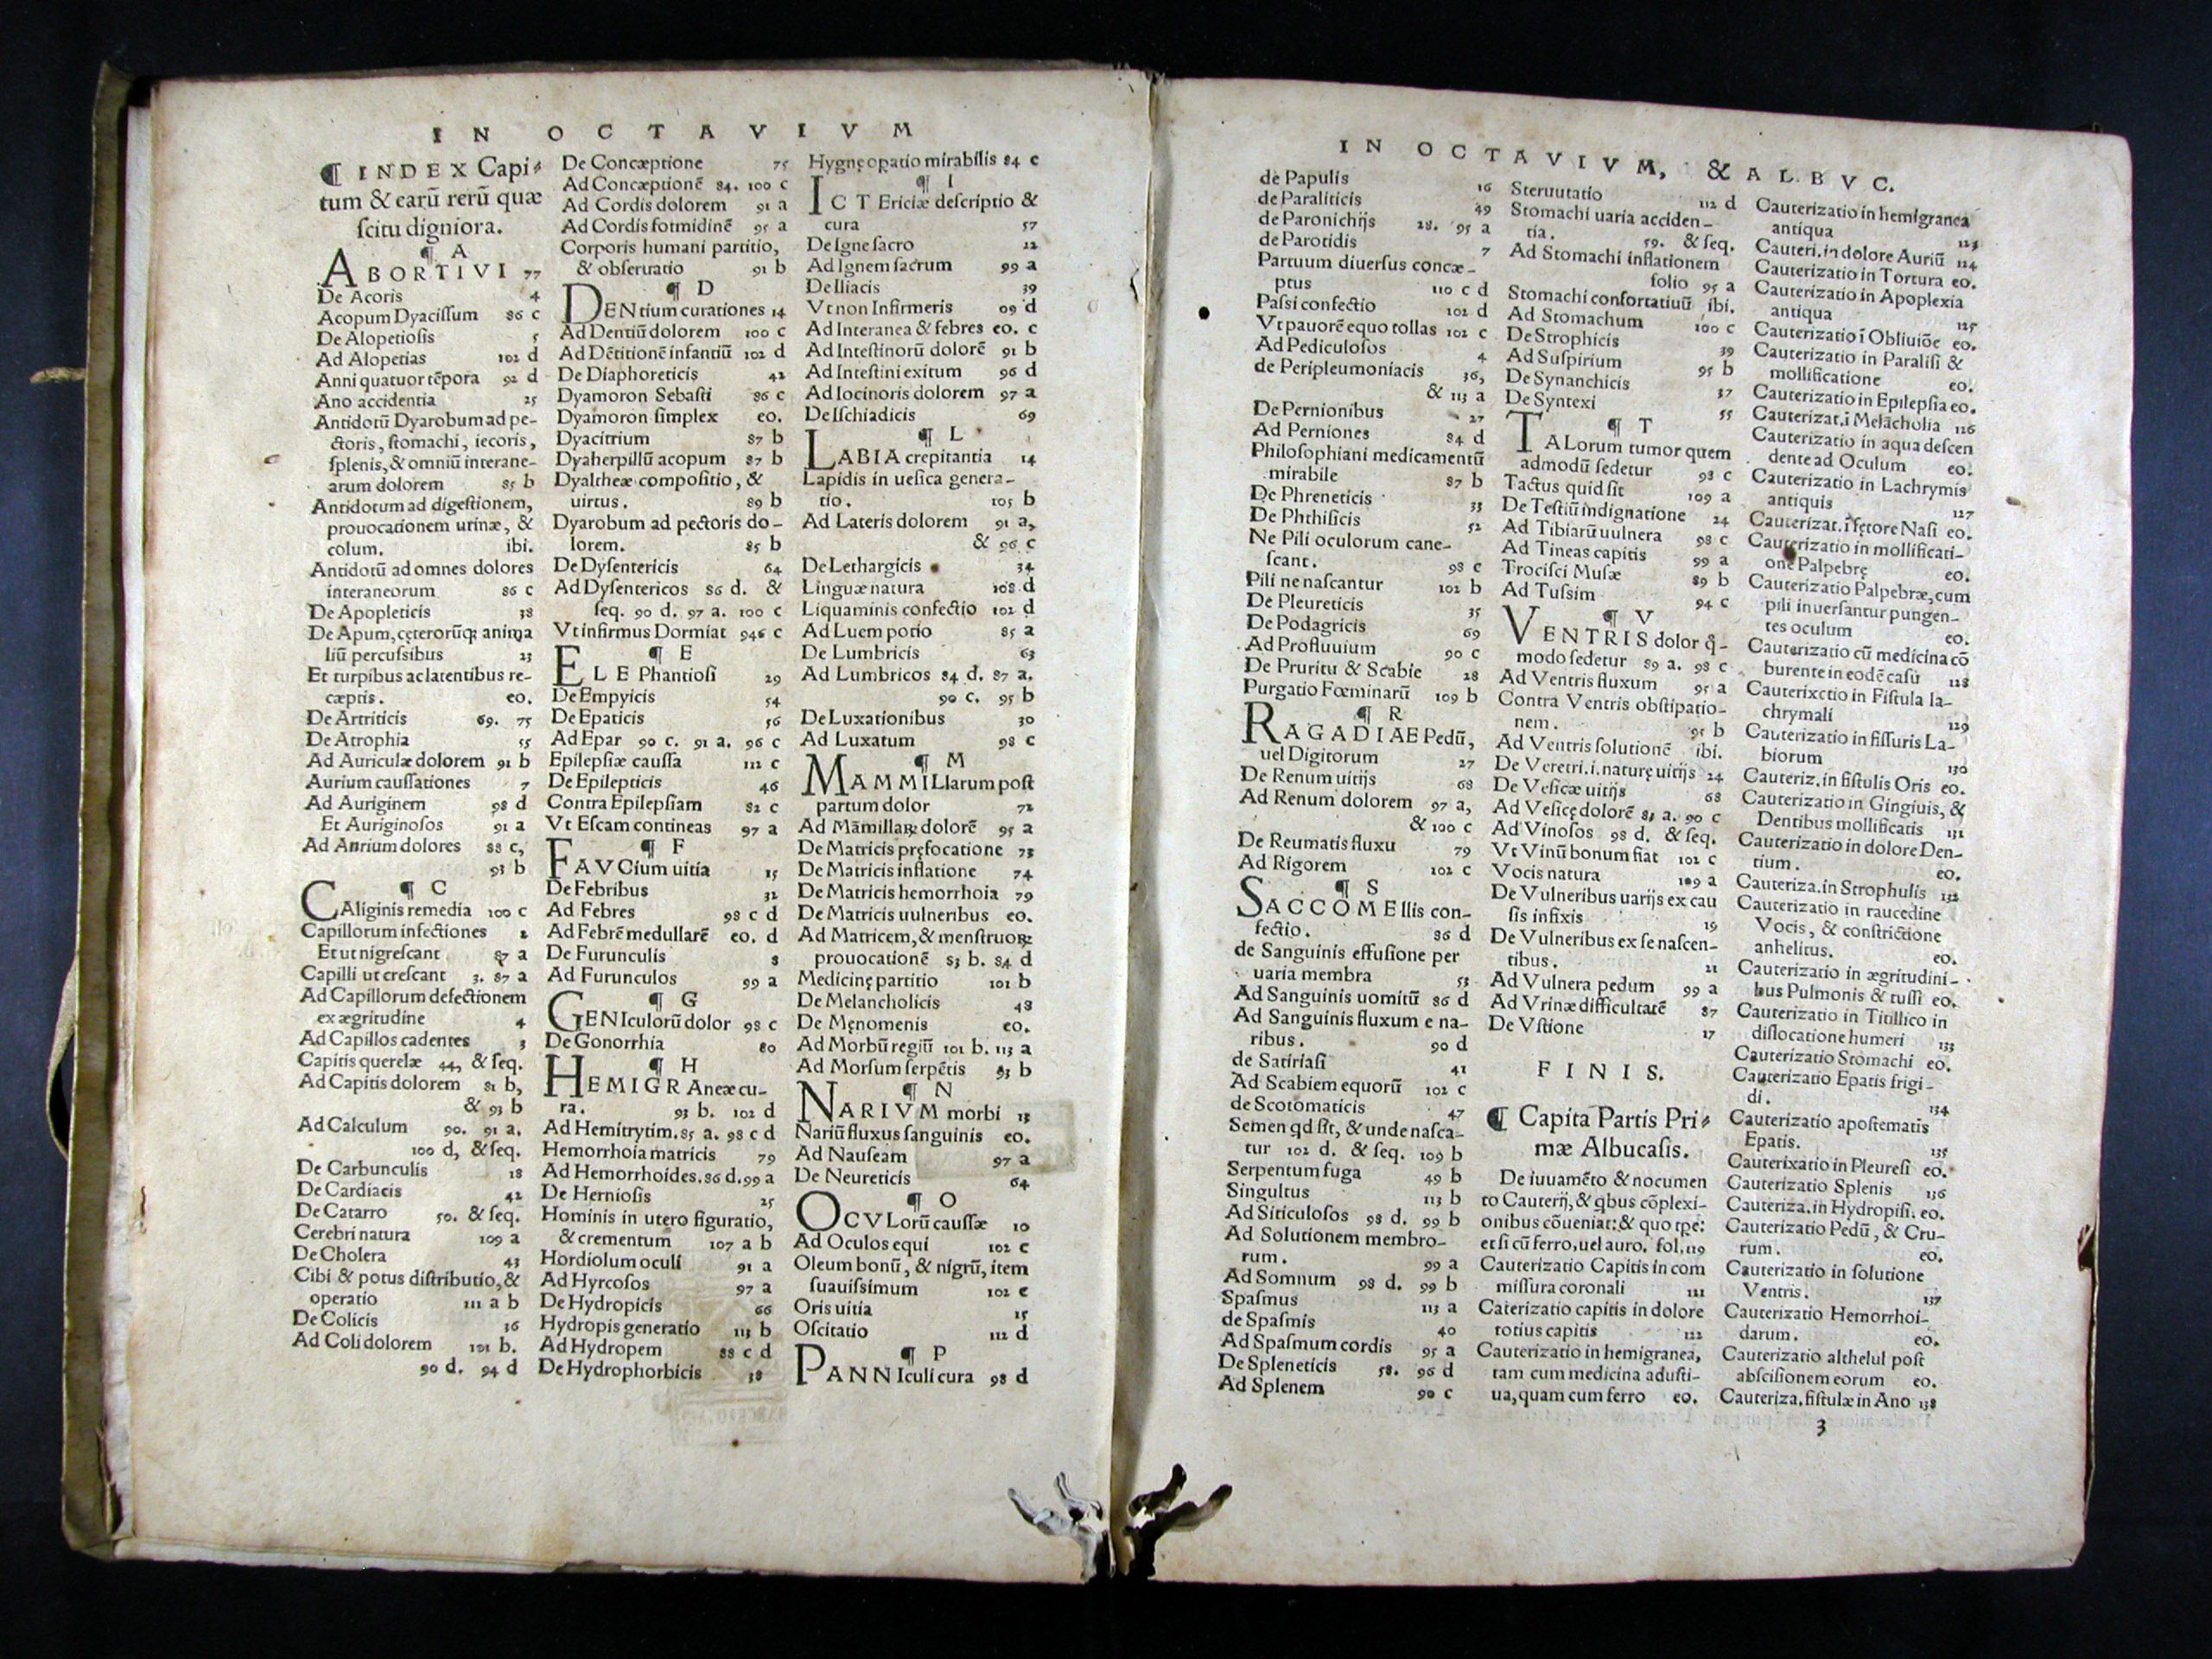 IN OCTAVIVM
¶ INDEX Capi⸗
tum & earū rerū quæ
scitu digniora.
¶ A
ABORTIVI 77
De Acoris 4
Acopum Dyacissum 86 c
De Alopetiosis 5
Ad Alopetias 102 d
Anni quatuor tēpora 92 d
Ano accidentia 25
Antidotū Dyarobum ad pe-
ctoris, stomachi, iecoris,
splenis, & omniū interane-
arum dolorem 85 b
Antidotum ad digestionem,
prouocationem urinæ, &
colum. ibi.
Antidotū ad omnes dolores
interaneorum 86 c
De Apopleticis 38
De Apum, cęterorūq; anima
liū percussibus 23
Et turpibus ac latentibus re-
cæptis. eo.
De Artriticis 69. 75
De Atrophia 55
Ad Auriculæ dolorem 91 b
Aurium caussationes 7
Ad Auriginem 98 d
Et Auriginosos 91 a
Ad Anrium dolores 88 c,
93 b
¶ C
CAliginis remedia 100 c
Capillorum infectiones 2
Et ut nigrescant 87 a
Capilli ut crescant 3. 87 a
Ad Capillorum defectionem
ex ægritudine 4
Ad Capillos cadentes 3
Capitis querelæ 44, & seq.
Ad Capitis dolorem 81 b,
& 93 b
Ad Calculum 90. 91 a.
100 d, & seq.
De Carbunculis 18
De Cardiacis 42
De Catarro 50. & seq.
Cerebri natura 109 a
De Cholera 43
Cibi & potus distributio, &
operatio 111 a b
De Colicis 36
Ad Coli dolorem 101 b.
90 d. 94 d
De Concæptione 75
Ad Concæptionē 84. 100 c
Ad Cordis dolorem 91 a
Ad Cordis fotmidinē 95 a
Corporis humani partitio,
& obseruatio 91 b
¶ D
DENtium curationes 14
Ad Dentiū dolorem 100 c
Ad Dētitionē infantiū 102 d
De Diaphoreticis 42
Dyamoron Sebasti 86 c
Dyamoron simplex eo.
Dyacitrium 87 b
Dyaherpillū acopum 87 b
Dyaltheæ compositio, &
uirtus. 89 b
Dyarobum ad pectoris do-
lorem. 85 b
De Dysentericis 64
Ad Dysentericos 86 d. &
seq. 90 d. 97 a. 100 c
Vt infirmus Dormiat 946 c
¶ E
ELEPhantiosi 29
De Empyicis 54
De Epaticis 56
Ad Epar 90 c. 91 a. 96 c
Epilepsiæ caussa 112 c
De Epilepticis 46
Contra Epilepsiam 82 c
Vt Escam contineas 97 a
¶ F
FAVCium uitia 15
De Febribus 32
Ad Febres 98 c d
Ad Febrē medullarē eo. d
De Furunculis 8
Ad Furunculos 99 a
¶ G
GENIculorū dolor 98 c
De Gonorrhia 80
¶ H
HEMIGRAneæ cu-
ra. 93 b. 102 d
Ad Hemitrytim. 85 a. 98 c d
Hemorrhoia matricis 79
Ad Hemorrhoides. 86 d. 99 a
De Herniosis 25
Hominis in utero figuratio,
& crementum 107 a b
Hordiolum oculi 91 a
Ad Hyrcosos 97 a
De Hydropicis 66
Hydropis generatio 113 b
Ad Hydropem 88 c d
De Hydrophorbicis 38
Hygnęopatio mirabilis 84 c
¶ I
ICTEriciæ descriptio &
cura 57
De Igne sacro 22
Ad Ignem sacrum 99 a
De Iliacis 39
Vt non Infirmeris 09 d
Ad Interanea & febres eo. c
Ad Intestinorū dolorē 91 b
Ad Intestini exitum 96 d
Ad Iocinoris dolorem 97 a
De Ischiadicis 69
¶ L
LABIA crepitantia 14
Lapidis in uesica genera-
tio. 105 b
Ad Lateris dolorem 91 a,
& 96 c
De Lethargicis 34
Linguæ natura 108 d
Liquaminis confectio 102 d
Ad Luem potio 85 a
De Lumbricis 63
Ad Lumbricos 84 d. 87 a.
90 c. 95 b
De Luxationibus 30
Ad Luxatum 98 c
¶ M
MAMMILlarum post
partum dolor 72
Ad Māmillaꝝ dolorē 95 a
De Matricis pręfocatione 73
De Matricis inflatione 74
De Matricis hemorrhoia 79
De Matricis uulneribus eo.
Ad Matricem, & menstruoꝝ
prouocationē 83 b. 84 d
Medicinę partitio 101 b
De Melancholicis 48
De Męnomenis eo.
Ad Morbū regiū 101 b. 113 a
Ad Morsum serpētis 93 b
¶ N
NARIVM morbi 13
Nariū fluxus sanguinis eo.
Ad Nauseam 97 a
De Neureticis 64
¶ O
OCVLorū caussæ 10
Ad Oculos equi 102 c
Oleum bonū, & nigrū, item
suauissimum 102 c
Oris uitia 15
Oscitatio 112 d
¶ P
PANNIculi cura 98 d
IN OCTAVIVM, & ALBVC.
de Papulis 16
de Paraliticis 49
de Paronichijs 28. 95 a
de Parotidis 7
Partuum diuersus concæ-
ptus 110 c d
Passi confectio 102 d
Vt pauorē equo tollas 102 c
Ad Pediculosos 4
de Peripleumoniacis 36,
& 113 a
De Pernionibus 27
Ad Perniones 84 d
Philosophiani medicamentū
mirabile 87 b
De Phreneticis 33
De Phthisicis 52
Ne Pili oculorum cane-
scant. 98 c
Pili ne nascantur 102 b
De Pleureticis 35
De Podagricis 69
Ad Profluuium 90 c
De Pruritu & Scabie 28
Purgatio Fœminarū 109 b
¶ R
RAGADIAE Pedū,
uel Digitorum 27
De Renum uitijs 68
Ad Renum dolorem 97 a,
& 100 c
De Reumatis fluxu 79
Ad Rigorem 102 c
¶ S
SACCOMEllis con-
fectio. 86 d
de Sanguinis effusione per
uaria membra 53
Ad Sanguinis uomitū 86 d
Ad Sanguinis fluxum e na-
ribus. 90 d
de Satiriasi 41
Ad Scabiem equorū 102 c
de Scotomaticis 47
Semen qd sit, & unde nasca-
tur 102 d. & seq. 109 b
Serpentum fuga 49 b
Singultus 113 b
Ad Siticulosos 98 d. 99 b
Ad Solutionem membro-
rum. 99 a
Ad Somnum 98 d. 99 b
Spasmus 113 a
de Spasmis 40
Ad Spasmum cordis 95 a
De Spleneticis 58. 96 d
Ad Splenem 90 c
Steruutatio 112 d
Stomachi uaria acciden-
tia. 59. & seq.
Ad Stomachi inflationem
folio 95 a
Stomachi confortatiuū ibi.
Ad Stomachum 100 c
De Strophicis 39
Ad Suspirium 95 b
De Synanchicis 37
De Syntexi 55
¶ T
TALorum tumor quem
admodū sedetur 98 c
Tactus quid sit 109 a
De Testiū indignatione 24
Ad Tibiarū uulnera 98 c
Ad Tineas capitis 99 a
Trocisci Musæ 89 b
Ad Tussim 94 c
¶ V
VENTRIS dolor q̄-
modo sedetur 89 a. 98 c
Ad Ventris fluxum 95 a
Contra Ventris obstipatio-
nem. 95 b
Ad Ventris solutionē ibi.
De Veretri. i. naturę uitijs 24
De Vesicæ uitijs 68
Ad Vesicę dolorē 83 a. 90 c
Ad Vinosos 98 d. & seq.
Vt Vinū bonum fiat 102 c
Vocis natura 109 a
De Vulneribus uarijs ex cau
sis infixis 19
De Vulneribus ex se nascen-
tibus. 21
Ad Vulnera pedum 99 a
Ad Vrinæ difficultatē 87
De Vstione 17
FINIS.
¶ Capita Partis Pri⸗
mæ Albucasis.
De iuuamēto & nocumen
to Cauterij, & qbus cōplexi-
onibus cōueniat: & quo tpe:
et si cū ferro, uel auro. fol. 119
Cauterizatio Capitis in com
missura coronali 121
Caterizatio capitis in dolore
totius capitis 122
Cauterizatio in hemigranea,
tam cum medicina adusti-
ua, quam cum ferro eo.
Cauterizatio in hemigranea
antiqua 123
Cauteri. in dolore Auriū 124
Cauterizatio in Tortura eo.
Cauterizatio in Apoplexia
antiqua 125
Cauterizatio ī Obliuiōe eo.
Cauterizatio in Paralisi &
mollificatione eo.
Cauterizatio in Epilepsia eo.
Cauterizat. ī Melācholia 126
Cauterizatio in aqua descen
dente ad Oculum eo.
Cauterizatio in Lachrymis
antiquis 127
Cauterizat. ī fętore Nasi eo.
Cauterizatio in mollificati-
one Palpebrę eo.
Cauterizatio Palpebræ, cum
pili inuersantur pungen-
tes oculum eo.
Cauterizatio cū medicina cō
burente in eodē casu 128
Cauterixctio in Fistula la-
chrymali 129
Cauterizatio in fissuris La-
biorum 130
Cauteriz. in fistulis Oris eo.
Cauterizatio in Gingiuis, &
Dentibus mollificatis 131
Cauterizatio in dolore Den-
tium. eo.
Cauteriza. in Strophulis 132
Cauterizatio in raucedine
Vocis, & constrictione
anhelitus. eo.
Cauterizatio in ægritudini-
bus Pulmonis & tussi eo.
Cauterizatio in Titillico in
dislocatione humeri 133
Cauterizatio Stomachi eo.
Cauterizatio Epatis frigi-
di. 134
Cauterizatio apostematis
Epatis. 135
Cauterixatio in Pleuresi eo.
Cauterizatio Splenis 136
Cauteriza. in Hydropisi. eo.
Cauterizatio Pedū, & Cru-
rum. eo.
Cauterizatio in solutione
Ventris. 137
Cauterizatio Hemorrhoi-
darum. eo.
Cauterizatio althelul post
abscisionem eorum eo.
Cauteriza. fistulæ in Ano 138
3